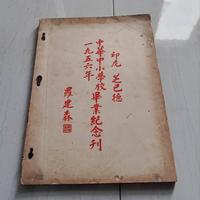 印尼 芝巴德
中華中小學校畢業紀念刊
一九五六年
羅建森